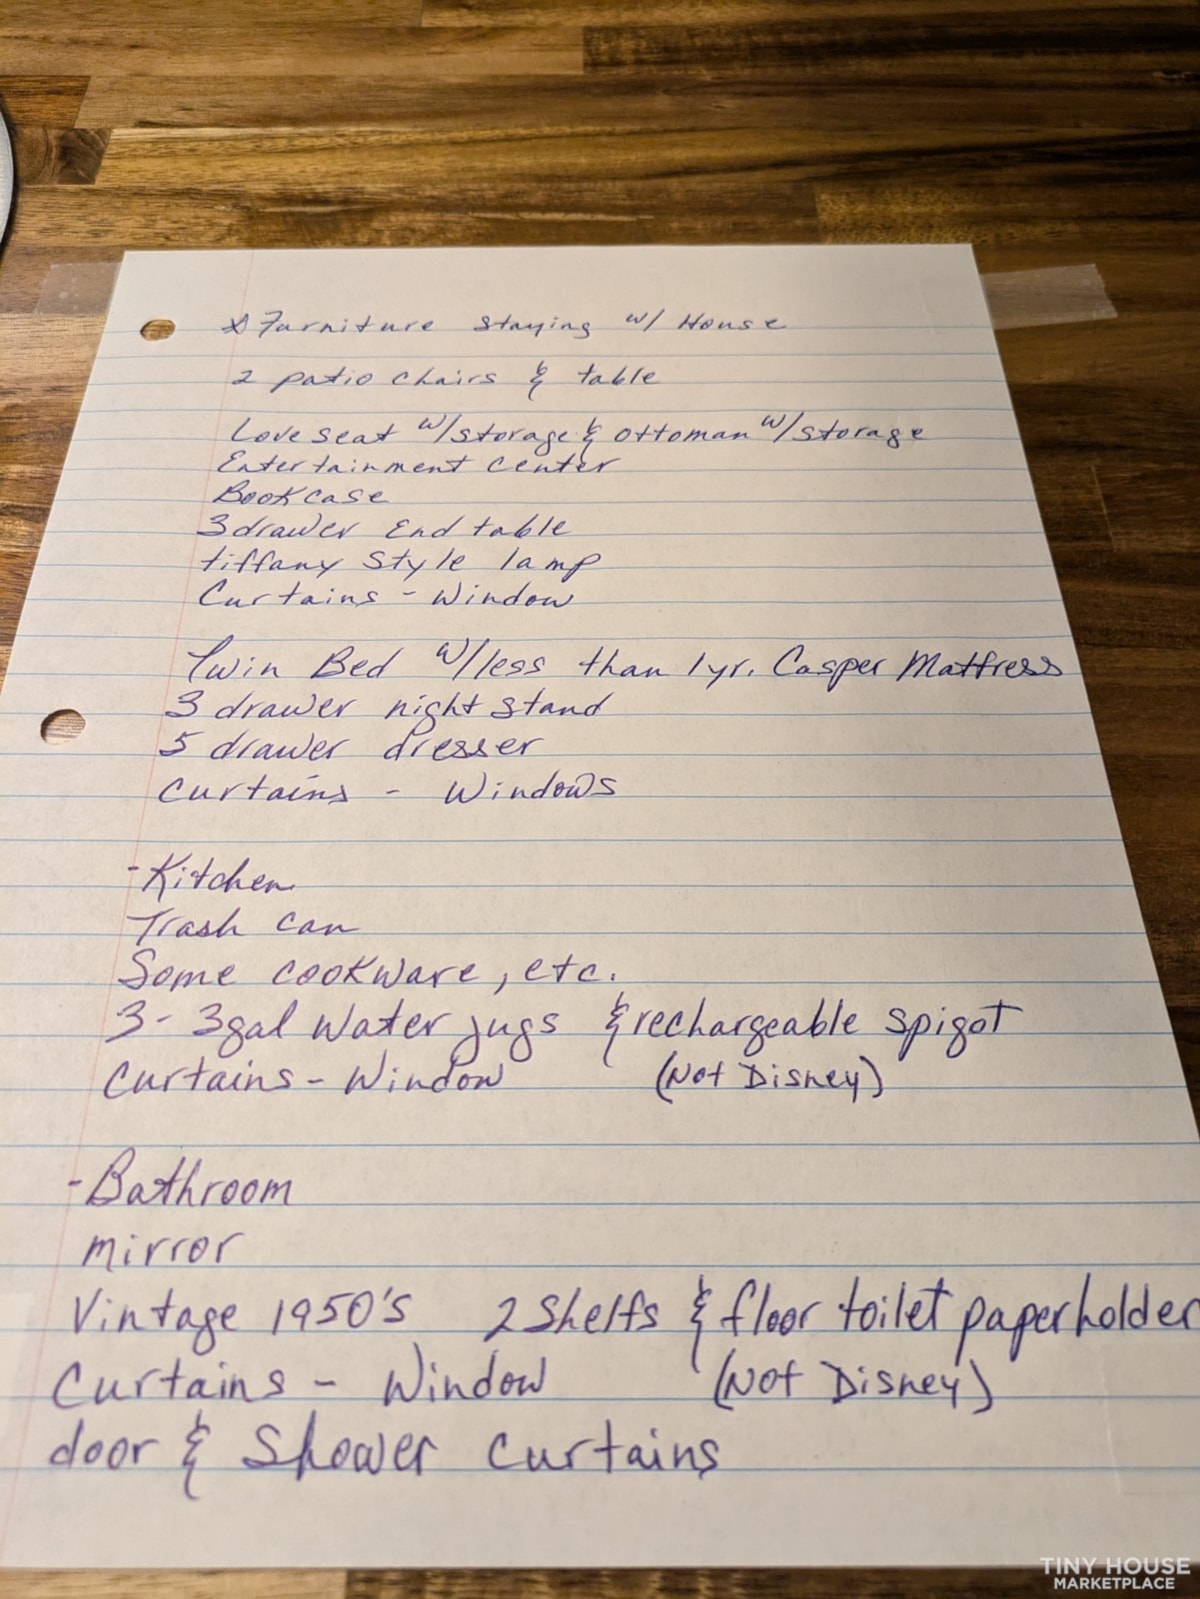 * Furniture staying w/ House
2 patio chairs & table
Loveseat w/storage & ottoman w/storage
Entertainment center
Bookcase
3 drawer End table
tiffany style lamp
Curtains - Window
Twin Bed w/less than 1yr. Casper Mattress
3 drawer night stand
5 drawer dresser
Curtains - Windows
- Kitchen
Trash can
Some cookware, etc.
3- 3gal Water jugs & rechargeable spigot
Curtains - Window (Not Disney)
- Bathroom
mirror
Vintage 1950's 2 Shelfs & floor toilet paperholder
Curtains - Window (Not Disney)
door & Shower curtains
TINY HOUSE
MARKETPLACE